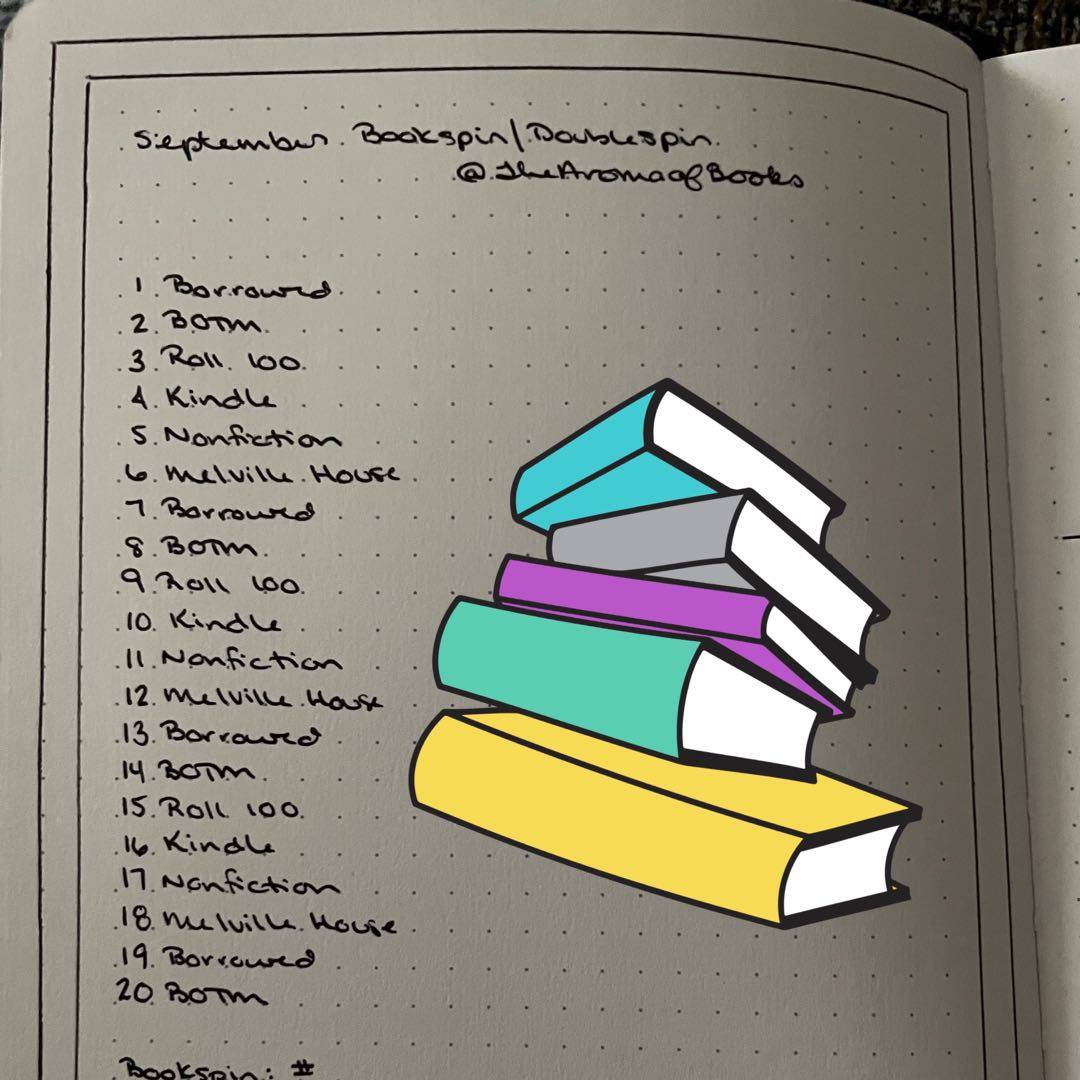 September Bookspin/Doublespin
@TheAromaofBooks
1 Borrowed
2. BOTM
3. Roll 100
4. Kindle
5. Nonfiction
6. Melville House
7. Borrowed
8 BOTM
9. Roll 100
10. Kindle
11. Nonfiction
12. Melville House
13. Borrowed
14. BOTM
15. Roll 100
16. Kindle
17. Nonfiction
18. Melville House
19. Borrowed
20. BOTM
Bookspin: #